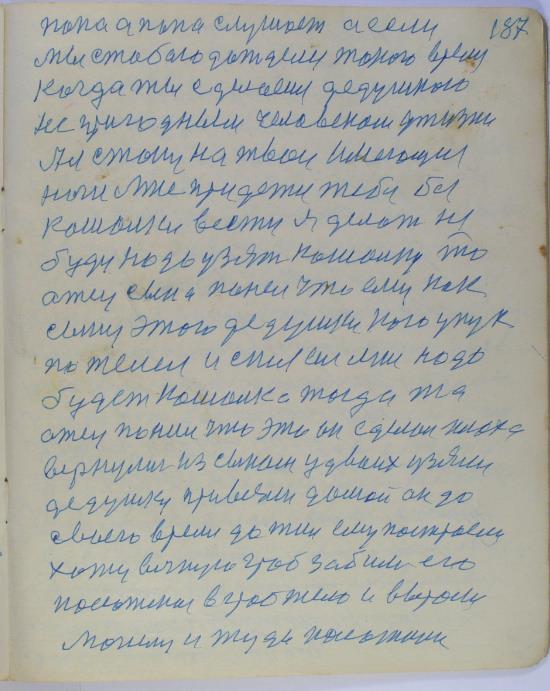 187
папа а папа слушает а если
мы стобого дождем токого время
когда ты сделаеш дедушкого
не пригодным человеком у жизни
Ал стану на твои
ноги мне придетжи тебя бы
кошолки вести я делат ни
буду надо узят кошолку то
отец сына понел что ему как
сыну этого дедушки кого унук
пожелел и если ему надо
будет кошолка тогда та
отец понил что это он сделал плоха
вернулис из сыном удвоих узяли
дедушку привезли домой он до
своего время дожил ему построели
хату вечную гроб забили его
положили в гроб тело и вырыли
могилу и туда положили